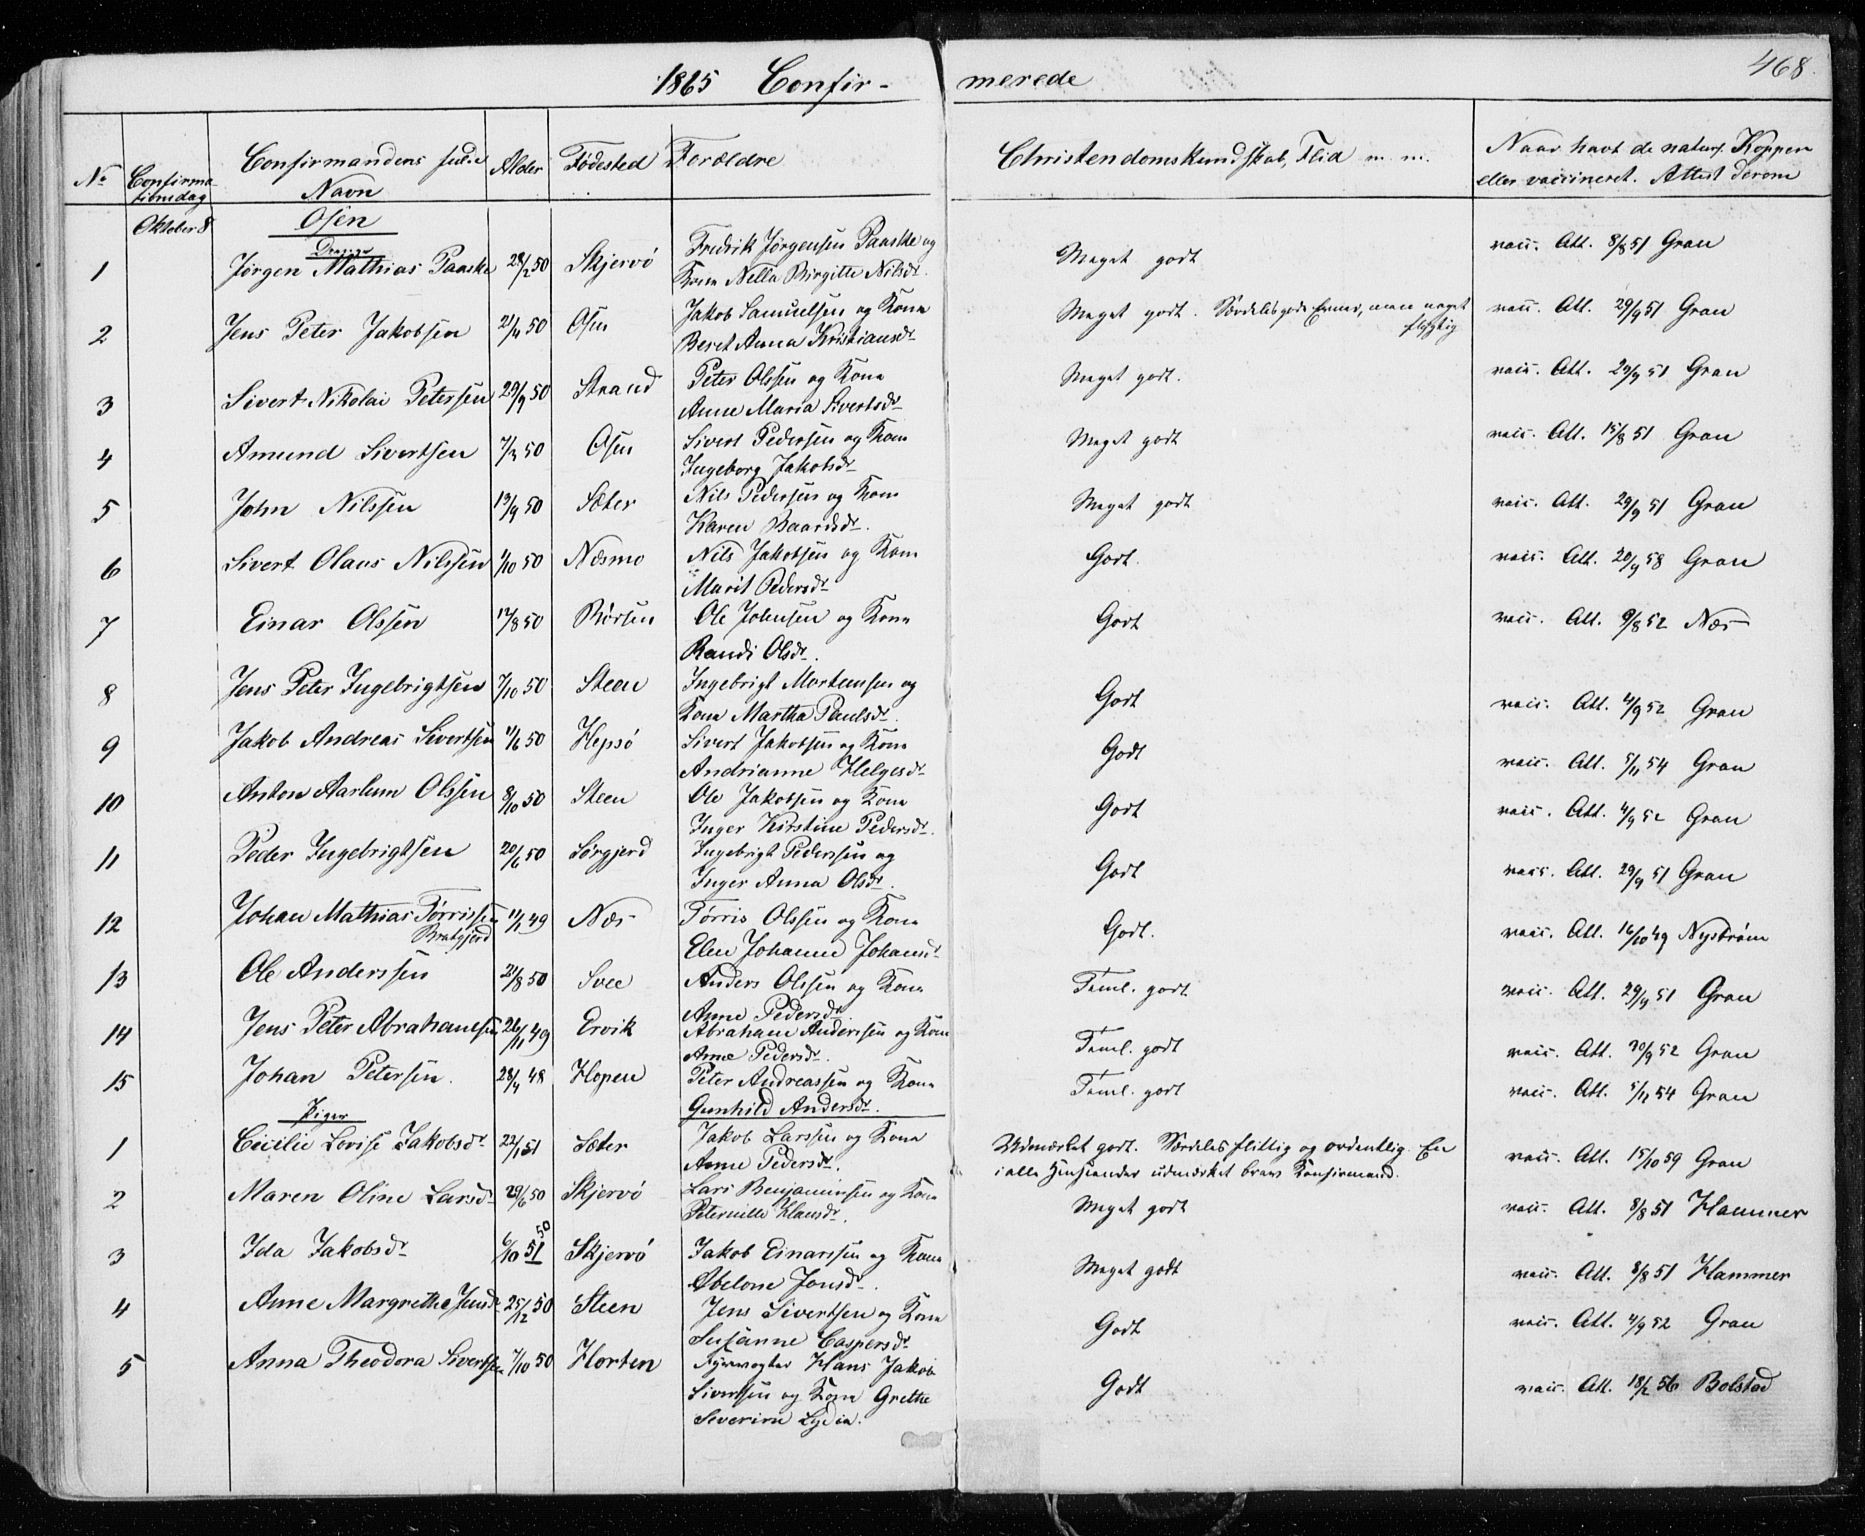 468.
1865 Confir- merede
No Confirma- tionsdag Confirmandens fulde Navn Alder Fødested Forældre Christendomskundskab, Flid m. m. Naar havt de naturl. Kopper eller vaccineret. Attest derom
Oktober 8 Osen
Drenge
1 Jørgen Mathias Paaske 28/2 50 Skjervø Fredrik Jørgensen Paaske og Meget godt vacc. Att. 8/8 51 Gran
Kone Nella Birgitte Nilsdr.
2 Jens Peter Jakobsen 21/4 50 Osen Jakob Samuelsen og Kone Meget godt. Særdeles gode Evner, men noget flygtig vacc. Att. 29/9 51 Gran
Beret Anna Kristiansdr
3 Sivert Nikolai Petersen 29/9 50 Strand Peter Olssen og Kone Meget godt. vacc. Att. 29/9 51 Gran
Anne Maria Sivertsdr
4 Amund Sivertsen 7/3 50 Osen Sivert Pedersen og Kone Meget godt vacc. Att. 15/8 51 Gran
Ingeborg Jakobsdr
5 John Nilssen 19/9 50 Sæter Nils Pedersen og Kone Meget godt vacc. Att. 29/9 51 Gran
Karen Baardsdr.
6 Sivert Olaus Nilssen 1/10 50 Næsmo Nils Jakobsen og Kone Godt. vacc. Att. 20/9 58 Gran
Marit Pedersdr
7 Einar Olssen 17/8 50 Børsen Ole Johnsen og Kone Godt vacc. Att. 9/8 52 Næs
Randi Olsdr.
8 Jens Peter Ingebrigtsen 7/10 50 Steen Ingebrigt Mortensen og Godt vacc. Att. 4/9 52 Gran
Kone Martha Paulsdr.
9 Jakob Andreas Sivertsen 11/6 50 Hepsø Sivert Jakobsen og Kone Godt vacc. Att. 5/11 54 Gran
Andrianne Helgesdr
10 Anton Aarlum Olssen 8/10 50 Steen Ole Jakobsen og Kone Godt vacc. Att. 4/9 52 Gran
Inger Kirstine Pedersdr.
11 Peder Ingebrigtsen 20/6 50 Sørgjerd Ingebrigt Pederssen og Godt vacc. Att. 29/9 51 Gran
Inger Anna Olsdr.
12 Johan Mathias Tørrissen Bratgjerd 11/1 49 Næs Tørris Olssen og Kone Godt. vacc. Att. 16/10 49 Nysbrøm
Elen Johanne Johansdr
13 Ole Anderssen 21/8 50 Svee Anders Olssen og Kone Teml. godt vacc. Att. 29/9 51 Gran
Anne Pedersdr.
14 Jens Peter Abrahamsen 26/11 49 Ervik Abraham Anderssen og Kone Teml. godt vacc. Att. 30/9 52 Gran
Anne Pedersdr.
15 Johan Petersen. 28/4 48 Hopen Peter Andreassen og Kone Teml. godt vacc. Att. 5/11 54 Gran
Gunhild Andersdr.
Piger
1 Cecilie Lovise Jakobsdr 22/1 51 Sæter Jakob Larssen og Kone Udmærket godt. Særdeles flittig og ordentlig. En vacc. Att. 15/10 59 Gran
Anne Pedersdr. i alle Henseender udmærket brav Konfirmand.
2 Maren Oline Larsdr 29/6 50 Skjervø Lars Benjaminsen og Kone Meget godt vacc. Att. 8/8 51 Hammer
Peternille Klausdr.
3 Ida Jakobsdr 6/10 51 50 Skjervø Jakob Einarssen og Kone Meget godt vacc. Att. 8/8 51 Hammer
Abelone Jonsdr.
4 Anne Margrethe Jensdr 25/12 50 Steen Jens Sivertsen og Kone Godt vacc. Att. 4/9 52 Gran
Susanne Caspersdr
5 Anna Theodora Sivertsen 7/10 50 Horten Fyrvogter Hans Jakob Godt vacc. Att. 18/2 56 Bolstad
Sivertsen og Kone Grethe
Severine Lydia.